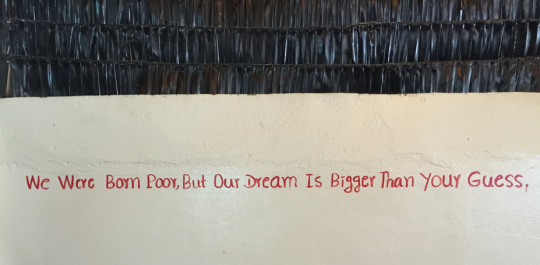 We Were Born Poor, But Our Dream Is Bigger Than Your Guess,